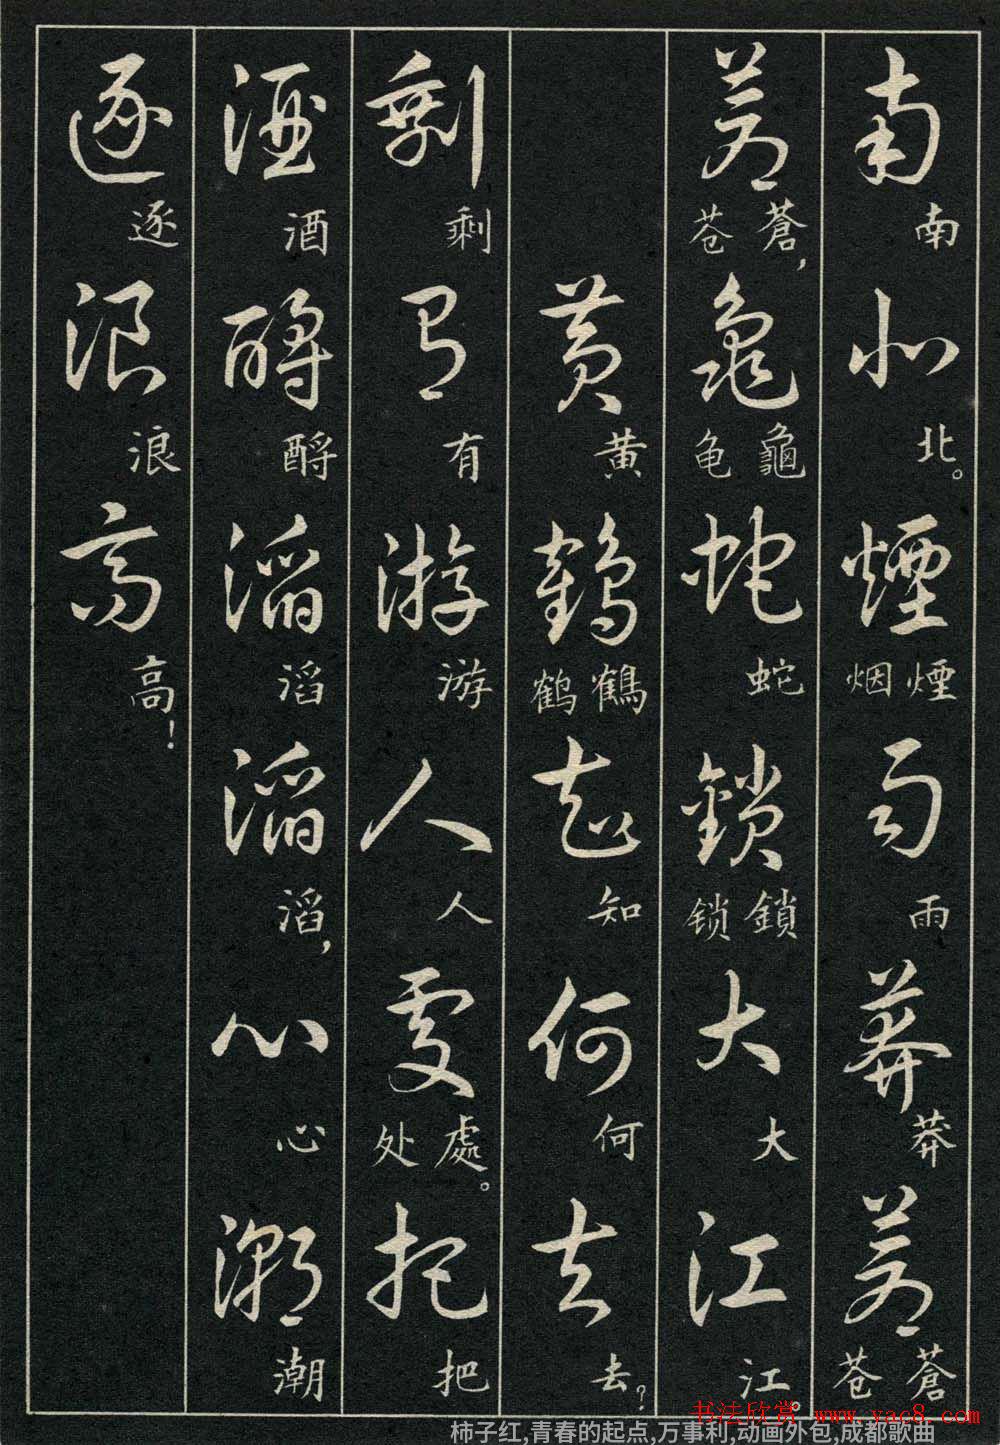 南 南 北 北。 煙 煙 烟 雨 雨 莽 莽 蒼 蒼 苍
蒼 蒼, 苍 龜 龜 龟 蛇 蛇 鎖 鎖 锁 大 大 江 江。
黄 黄 鶴 鶴 鹤 知 知 何 何 去 去?
剩 剩 有 有 游 游 人 人 處 處。 处 把 把
酒 酒 酹 酹 滔 滔 滔 滔, 心 心 潮 潮
逐 逐 浪 浪 高 高!
书法欣赏 www.yac8.com
柿子红,青春的起点,万事利,动画外包,成都歌曲